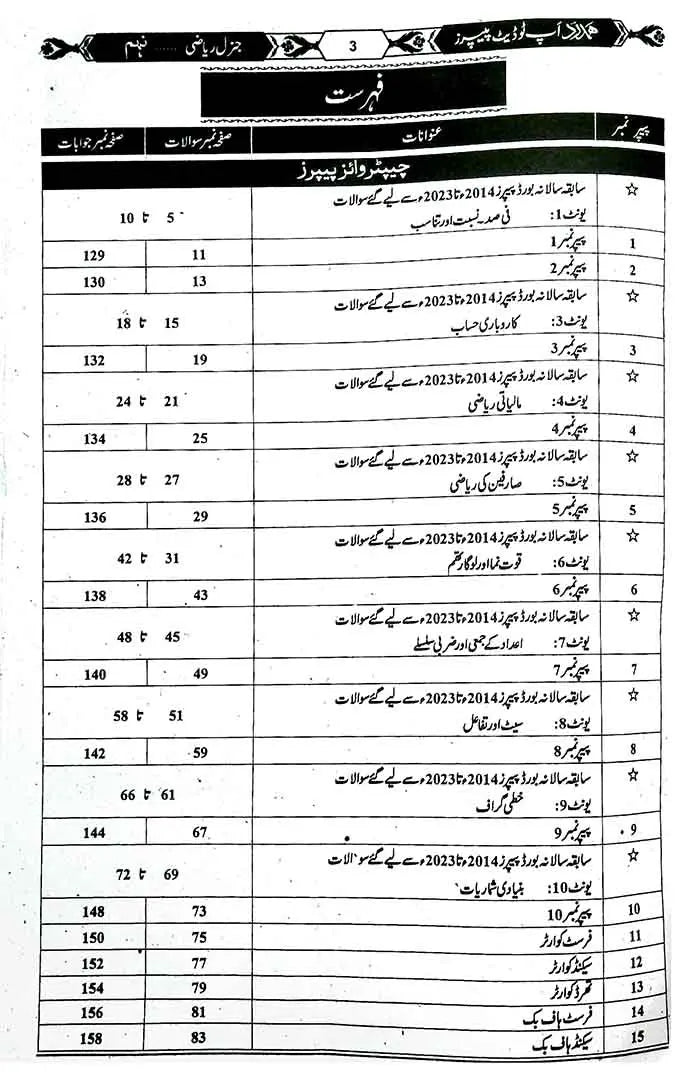 ہمدرد اپ ٹو ڈیٹ پیپرز 3 جنرل ریاضی ...... نہم
فہرست
پیپر نمبر عنوانات صفحہ نمبر سوالات صفحہ نمبر جوابات
چیپٹر وائز پیپرز
☆ سابقہ سالانہ بورڈ پیپرز 2014ء تا 2023ء سے لیے گئے سوالات
یونٹ 1: فی صد، نسبت اور تناسب 5 تا 10
1 پیپر نمبر 1 11 129
2 پیپر نمبر 2 13 130
☆ سابقہ سالانہ بورڈ پیپرز 2014ء تا 2023ء سے لیے گئے سوالات
یونٹ 3: کاروباری حساب 15 تا 18
3 پیپر نمبر 3 19 132
☆ سابقہ سالانہ بورڈ پیپرز 2014ء تا 2023ء سے لیے گئے سوالات
یونٹ 4: مالیاتی ریاضی 21 تا 24
4 پیپر نمبر 4 25 134
☆ سابقہ سالانہ بورڈ پیپرز 2014ء تا 2023ء سے لیے گئے سوالات
یونٹ 5: صارفین کی ریاضی 27 تا 28
5 پیپر نمبر 5 29 136
☆ سابقہ سالانہ بورڈ پیپرز 2014ء تا 2023ء سے لیے گئے سوالات
یونٹ 6: قوت نما اور لوگارتھم 31 تا 42
6 پیپر نمبر 6 43 138
☆ سابقہ سالانہ بورڈ پیپرز 2014ء تا 2023ء سے لیے گئے سوالات
یونٹ 7: اعداد کے جمعی اور ضربی سلسلے 45 تا 48
7 پیپر نمبر 7 49 140
☆ سابقہ سالانہ بورڈ پیپرز 2014ء تا 2023ء سے لیے گئے سوالات
یونٹ 8: سیٹ اور تفاعل 51 تا 58
8 پیپر نمبر 8 59 142
☆ سابقہ سالانہ بورڈ پیپرز 2014ء تا 2023ء سے لیے گئے سوالات
یونٹ 9: خطی گراف 61 تا 66
9 پیپر نمبر 9 67 144
☆ سابقہ سالانہ بورڈ پیپرز 2014ء تا 2023ء سے لیے گئے سوالات
یونٹ 10: بنیادی شماریات 69 تا 72
10 پیپر نمبر 10 73 148
11 فرسٹ کوارٹر 75 150
12 سیکنڈ کوارٹر 77 152
13 تھرڈ کوارٹر 79 154
14 فرسٹ ہاف بک 81 156
15 سیکنڈ ہاف بک 83 158